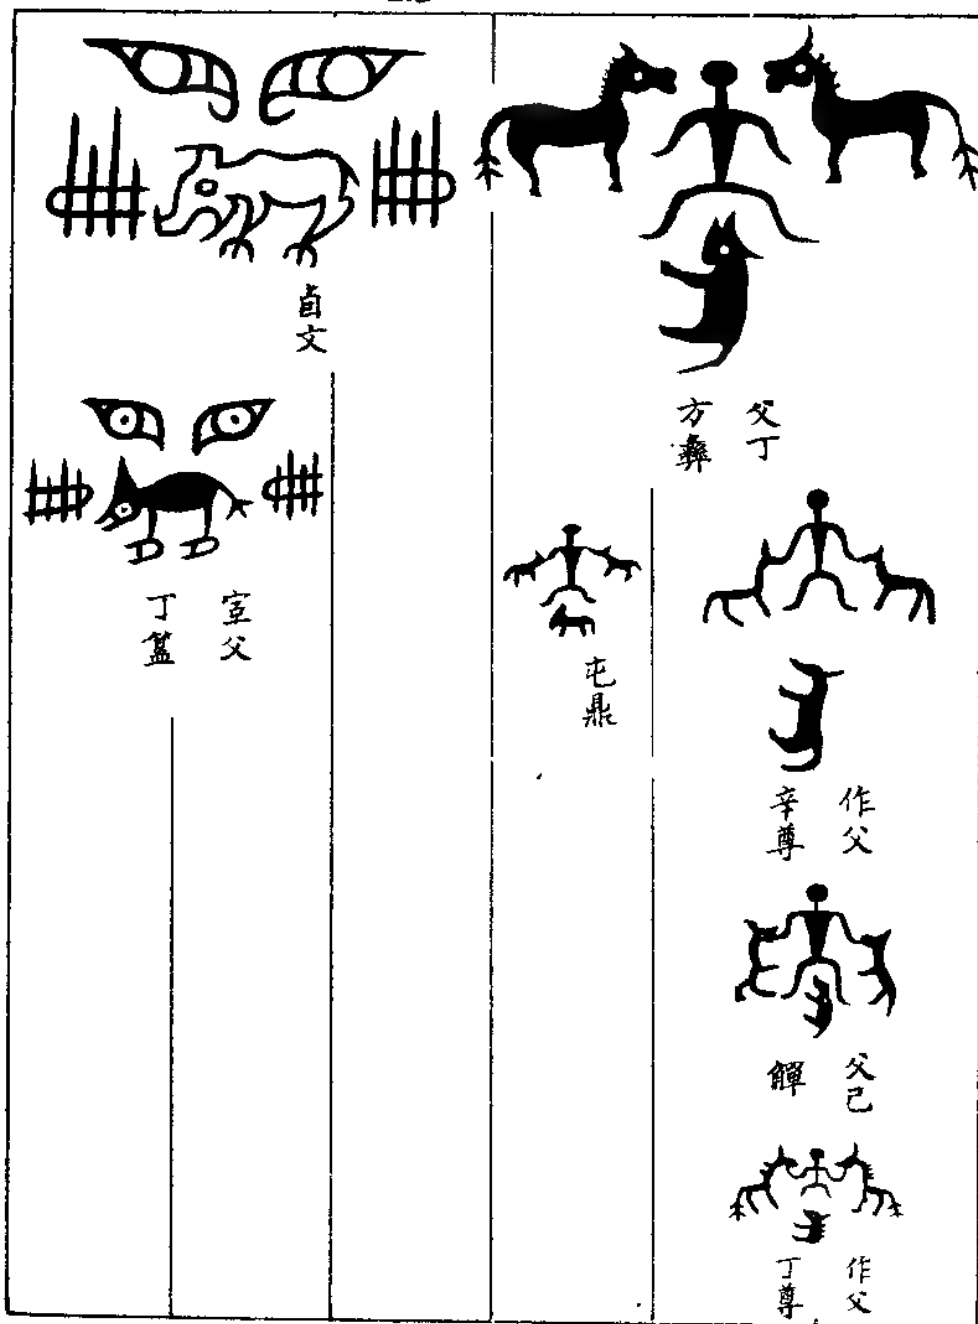 父丁
方彝
作父
辛尊
父己
觶
作父
丁尊
屯鼎
卣文
父
丁簋